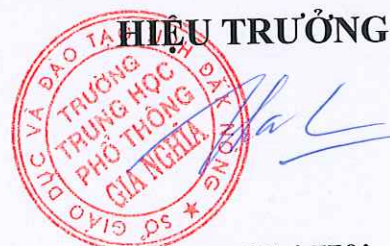 HIỆU TRƯỞNG
SỞ GIÁO DỤC VÀ ĐÀO TẠO TỈNH ĐẮK NÔNG
TRƯỜNG
TRUNG HỌC
PHỔ THÔNG
GIA NGHĨA